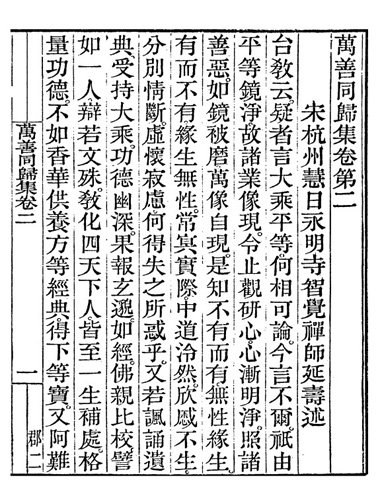 萬善同歸集卷第二
宋杭州慧日永明寺智覺禪師延壽述
台敎云。疑者言大乘平等。何相可論。今言不爾。祇由
平等鏡淨。故諸業像現。令止觀研心。心漸明淨。照諸
善惡。如鏡被磨。萬像自現。是知不有而有。無性緣生。
有而不有。緣生無性。常冥實際。中道泠然。欣慼不生。
分別情斷。虛懷寂慮。何得失之所惑乎。又若諷誦遺
典。受持大乘。功德幽深。果報玄邈。如經。佛親比校。譬
如一人辯若文殊。敎化四天下人。皆至一生補處。格
量功德。不如香華供養方等經典。得下等寶。又阿難
萬善同歸集卷二
一
郡二